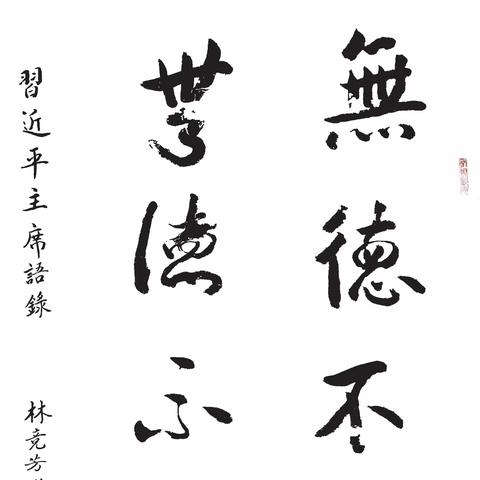 無德不
無德不
習近平主席語錄
林竟芳